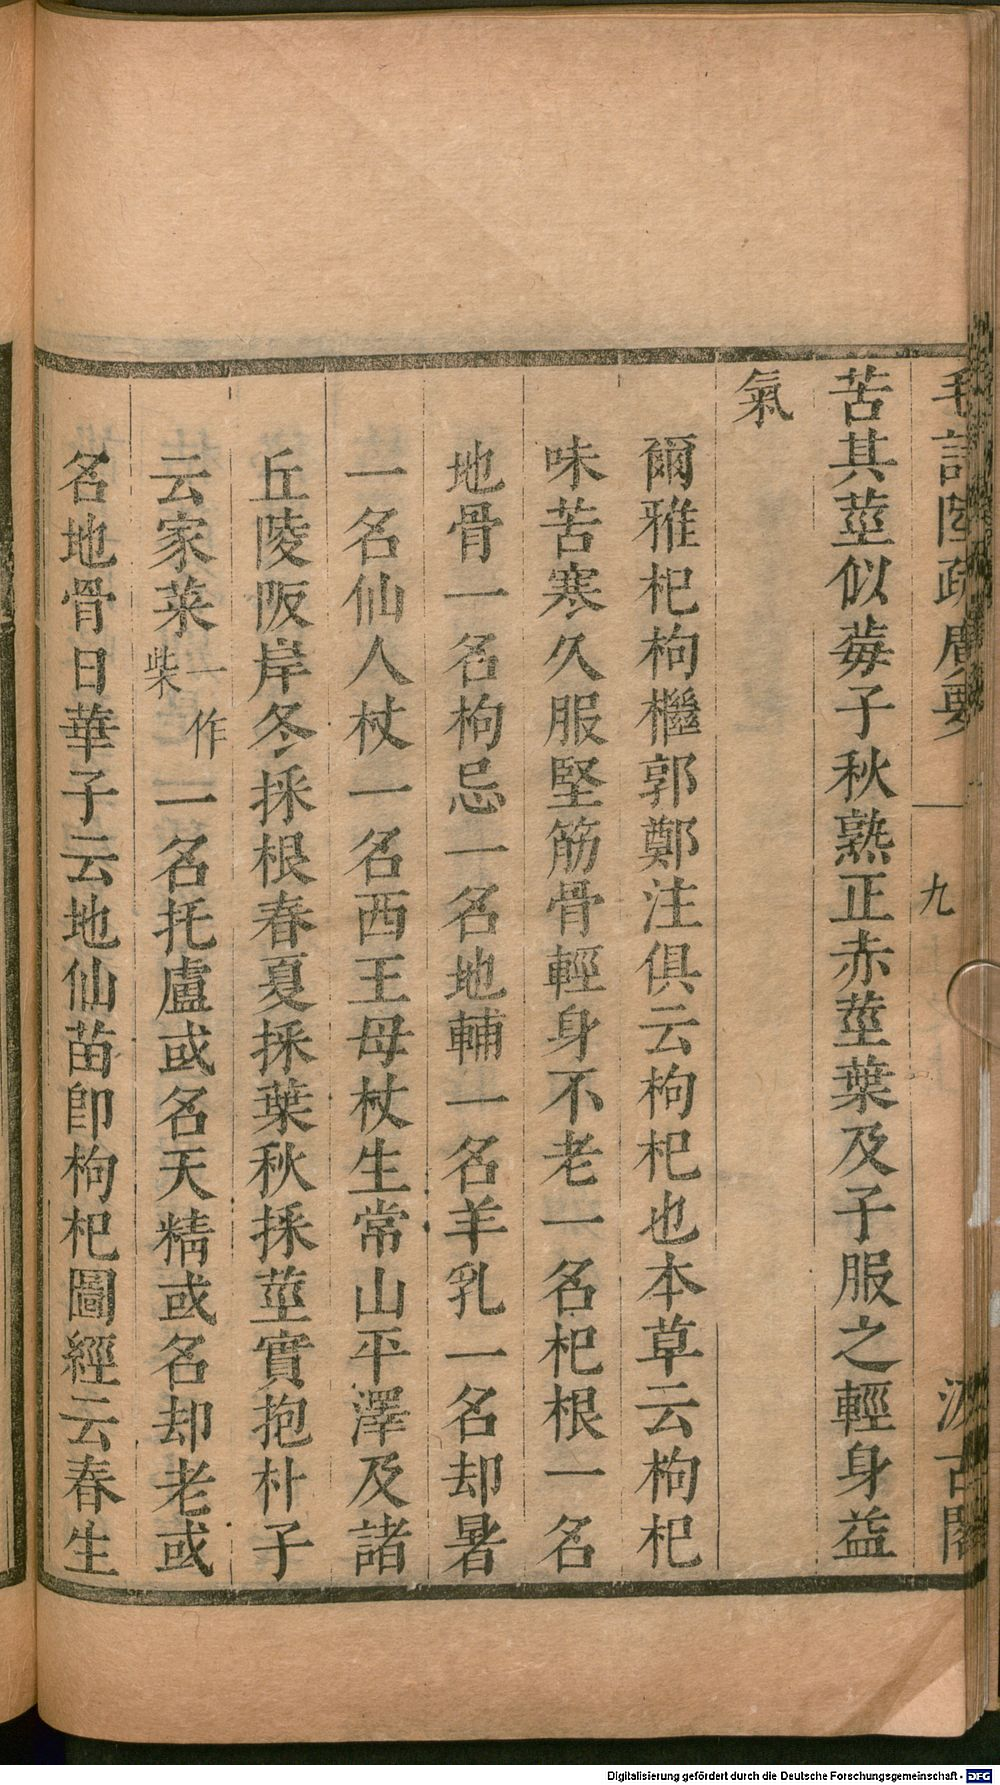 毛詩陸疏廣要
九
汲古閣
苦其莖似莓子秋熟正赤莖葉及子服之輕身益
氣
爾雅杞枸檵郭鄭注俱云枸杞也本草云枸杞
味苦寒久服堅筋骨輕身不老一名杞根一名
地骨一名枸忌一名地輔一名羊乳一名却暑
一名仙人杖一名西王母杖生常山平澤及諸
丘陵阪岸冬採根春夏採葉秋採莖實抱朴子
云家菜一作柴一名托盧或名天精或名却老或
名地骨日華子云地仙苗卽枸杞圖經云春生
Digitalisierung gefördert durch die Deutsche Forschungsgemeinschaft - DFG